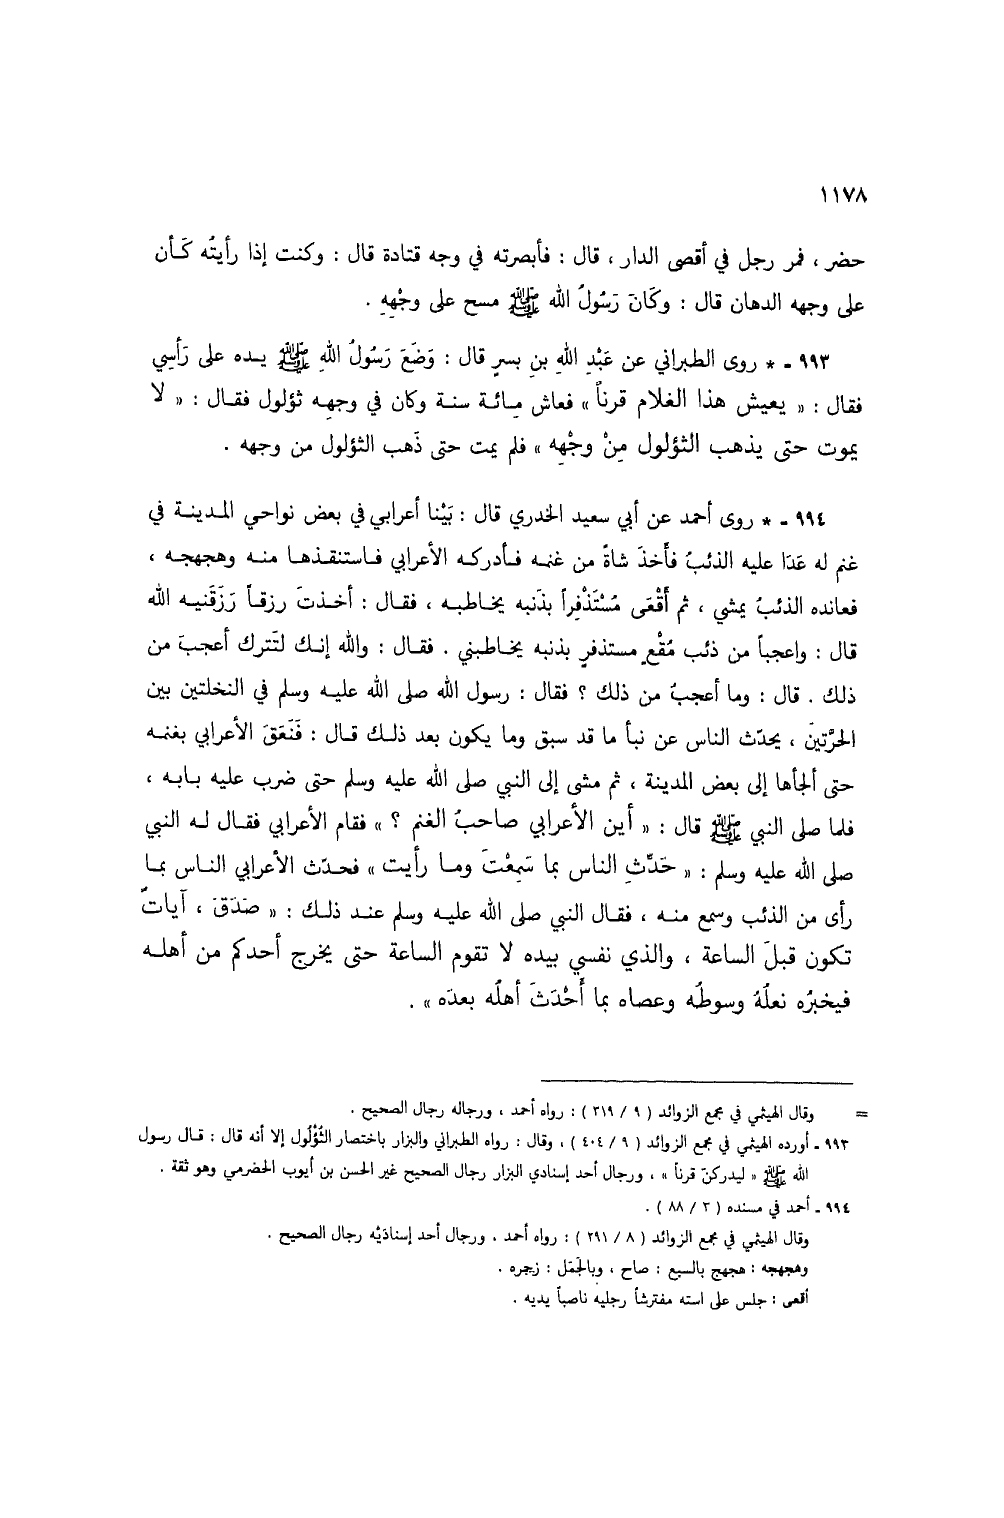 ١١٧٨
حضر ، فمر رجل في أقصى الدار ، قال : فأبصرته في وجه قتادة قال : وكنت إذا رأيتُه كَأن
على وجهه الدهان قال : وكَانَ رَسُولُ الله ﷺ مسح على وجْهِهِ .
٩٩٣ ـ * روى الطبراني عن عَبْدِ اللهِ بنِ بسرٍ قال : وَضَعَ رَسُولُ اللهِ ﷺ يـده على رَأسِي
فقال : « يعيش هذا الغلام قرناً » فعاش مـائـة سنـة وكان في وجهـه ثؤلول فقـال : « لا
يموت حتى يذهب الثؤلول مِنْ وجْهِه » فلم يمت حتى ذَهب الثؤلول من وجهه .
٩٩٤ ـ * روى أحمد عن أبي سعيد الخدري قال : بَيْنا أعرابي في بعض نواحي المـدينـة في
غنم له عَدَا عليه الذئبُ فأَخذَ شاةً من غنمـه فـأدركـه الأعرابي فـاستنقـذهـا منـه وهجهجـه ،
فعانده الذئبُ يمشي ، ثم أَقْعَى مُسْتَذْفِراً بذَنبه يخـاطبـه ، فقـال : أخـذتَ رزقـاً رَزَقَنيـه الله
قال : واعجباً من ذئب مُقْعٍ مستذفرٍ بذنبه يخـاطبني . فقـال : والله إنـك لتَترك أعجبَ من
ذلك . قال : وما أعجبُ من ذلك ؟ فقال : رسول الله صلى الله عليـه وسلم في النخلتين بين
الحرَّتينَ ، يحدّث الناس عن نبأ ما قد سبق وما يكون بعد ذلـك قـال : فَنَعَقَ الأعرابي بغنمـه
حتى ألجأها إلى بعض المدينة ، ثم مشى إلى النبي صلى الله عليه وسلم حتى ضرب عليه بـابـه ،
فلما صلى النبي ﷺ قال : « أين الأعرابي صاحبُ الغنم ؟ » فقام الأعرابي فقـال لـه النبي
صلى الله عليه وسلم : « حَدّثِ الناس بما سَمِعْتَ ومـا رأيت » فحـدّث الأعرابي النـاس بمـا
رأى من الذئب وسمع منـه ، فقـال النبي صلى الله عليـه وسلم عنـد ذلـك : « صَدَقَ ، آيـاتٌ
تكون قبلَ الساعة ، والذي نفسي بيده لا تقوم الساعة حتى يخرج أحدكم من أهلـه
فيخبرُه نعلُهُ وسوطُه وعصاه بما أَحْدَثَ أهلُه بعدَه » .
= وقال الهيثمي في مجمع الزوائد ( ٩ / ٣١٩ ) : رواه أحمد ، ورجاله رجال الصحيح .
٩٩٣ ـ أورده الهيثمي في مجمع الزوائد ( ٩ / ٤٠٤ ) ، وقال : رواه الطبراني والبزار باختصار الثؤلول إلا أنه قال : قـال رسول
الله ﷺ « ليدركنّ قرناً » ، ورجال أحد إسنادي البزار رجال الصحيح غير الحسن بن أيوب الحضرمي وهو ثقة .
٩٩٤ ـ أحمد في مسنده ( ٣ / ٨٨ ) .
وقال الهيثمي في مجمع الزوائد ( ٨ / ٢٩١ ) : رواه أحمد ، ورجال أحد إسنادَيْه رجال الصحيح .
وهجهجه : هجهج بالسبع : صاح ، وبالجَمَل : زجره .
أقعى : جلس على استه مفترشاً رجليه ناصباً يديه .